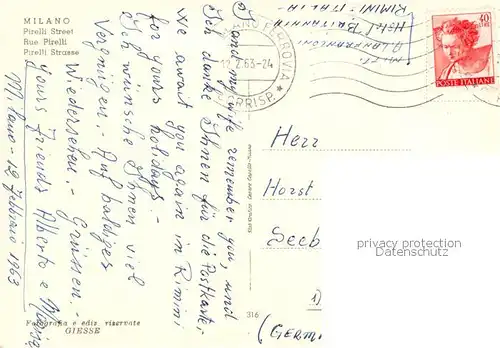 MILANO
Pirelli Street
Rue Pirelli
Pirelli Strasse
I and my wife remember you, und
Ich danke Ihnen für die Postkarte.
We await you again in Rimini
for yours holidays. -
Ich wünsche Ihnen viel
Vernügen. Auf baldiges
Wiedersehen. - Grüssen. -
Yours Friends Alberto e
Milano - 12 Febbraio 1963
Fotografia e ediz. riservate
GIESSE
316
MITT.
HOTEL BRITANNIA
RIMINI - ITALIA
FERROVIA
12.2.63-24
40
POSTE ITALIANE
Herr
Horst
Seeb
privacy protection
Datenschutz
1)
(GERM